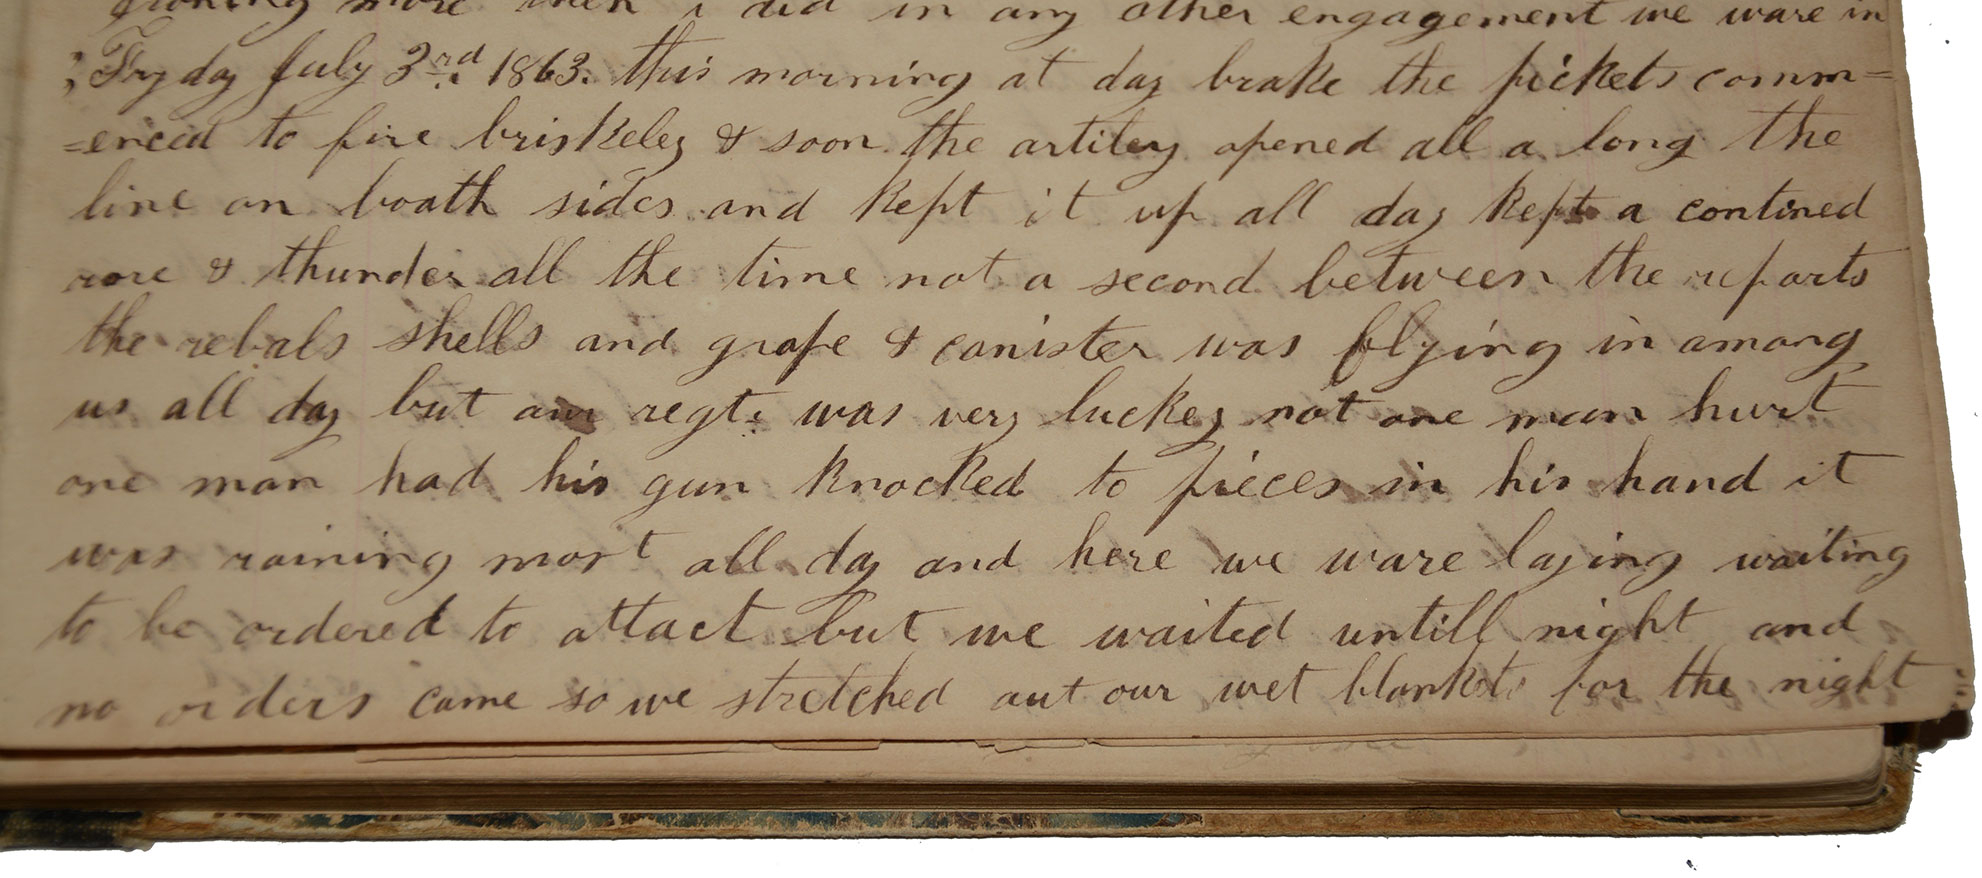 more then i did in any other engagement we ware in
; Fryday July 3rd. 1863. this morning at day brake the pickets comm=
=enced to fire briskeley & soon the artiley opened all a long the
line on boath sides and kept it up all day kept a contined
rore & thunder all the time not a second between the reports
the rebals shells and grape & canister was flying in among
us all day but our regt. was very luckey not one man hurt
one man had his gun knocked to pieces in his hand it
was raining most all day and here we ware laying waiting
to be ordered to attact but we waited untill night and
no orders came so we stretched out our wet blankets for the night